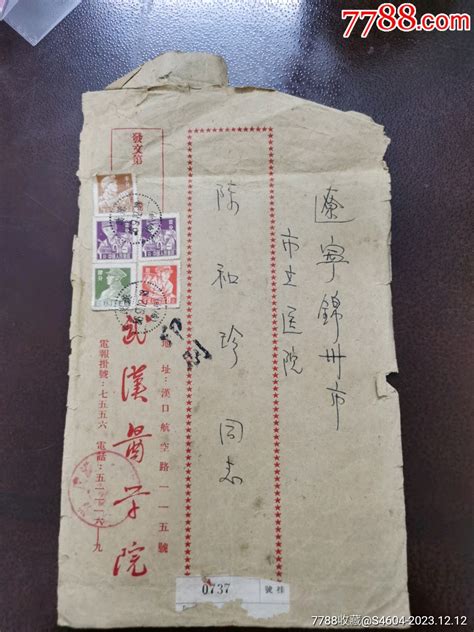 7788.com
發文第
遼寧錦州市
市立医院
陈和珍同志
武漢醫學院
地址:漢口航空路一一五號
電報掛號:七五五六 電話:五二一六九
0737
掛號
7788收藏@S4604-2023.12.12